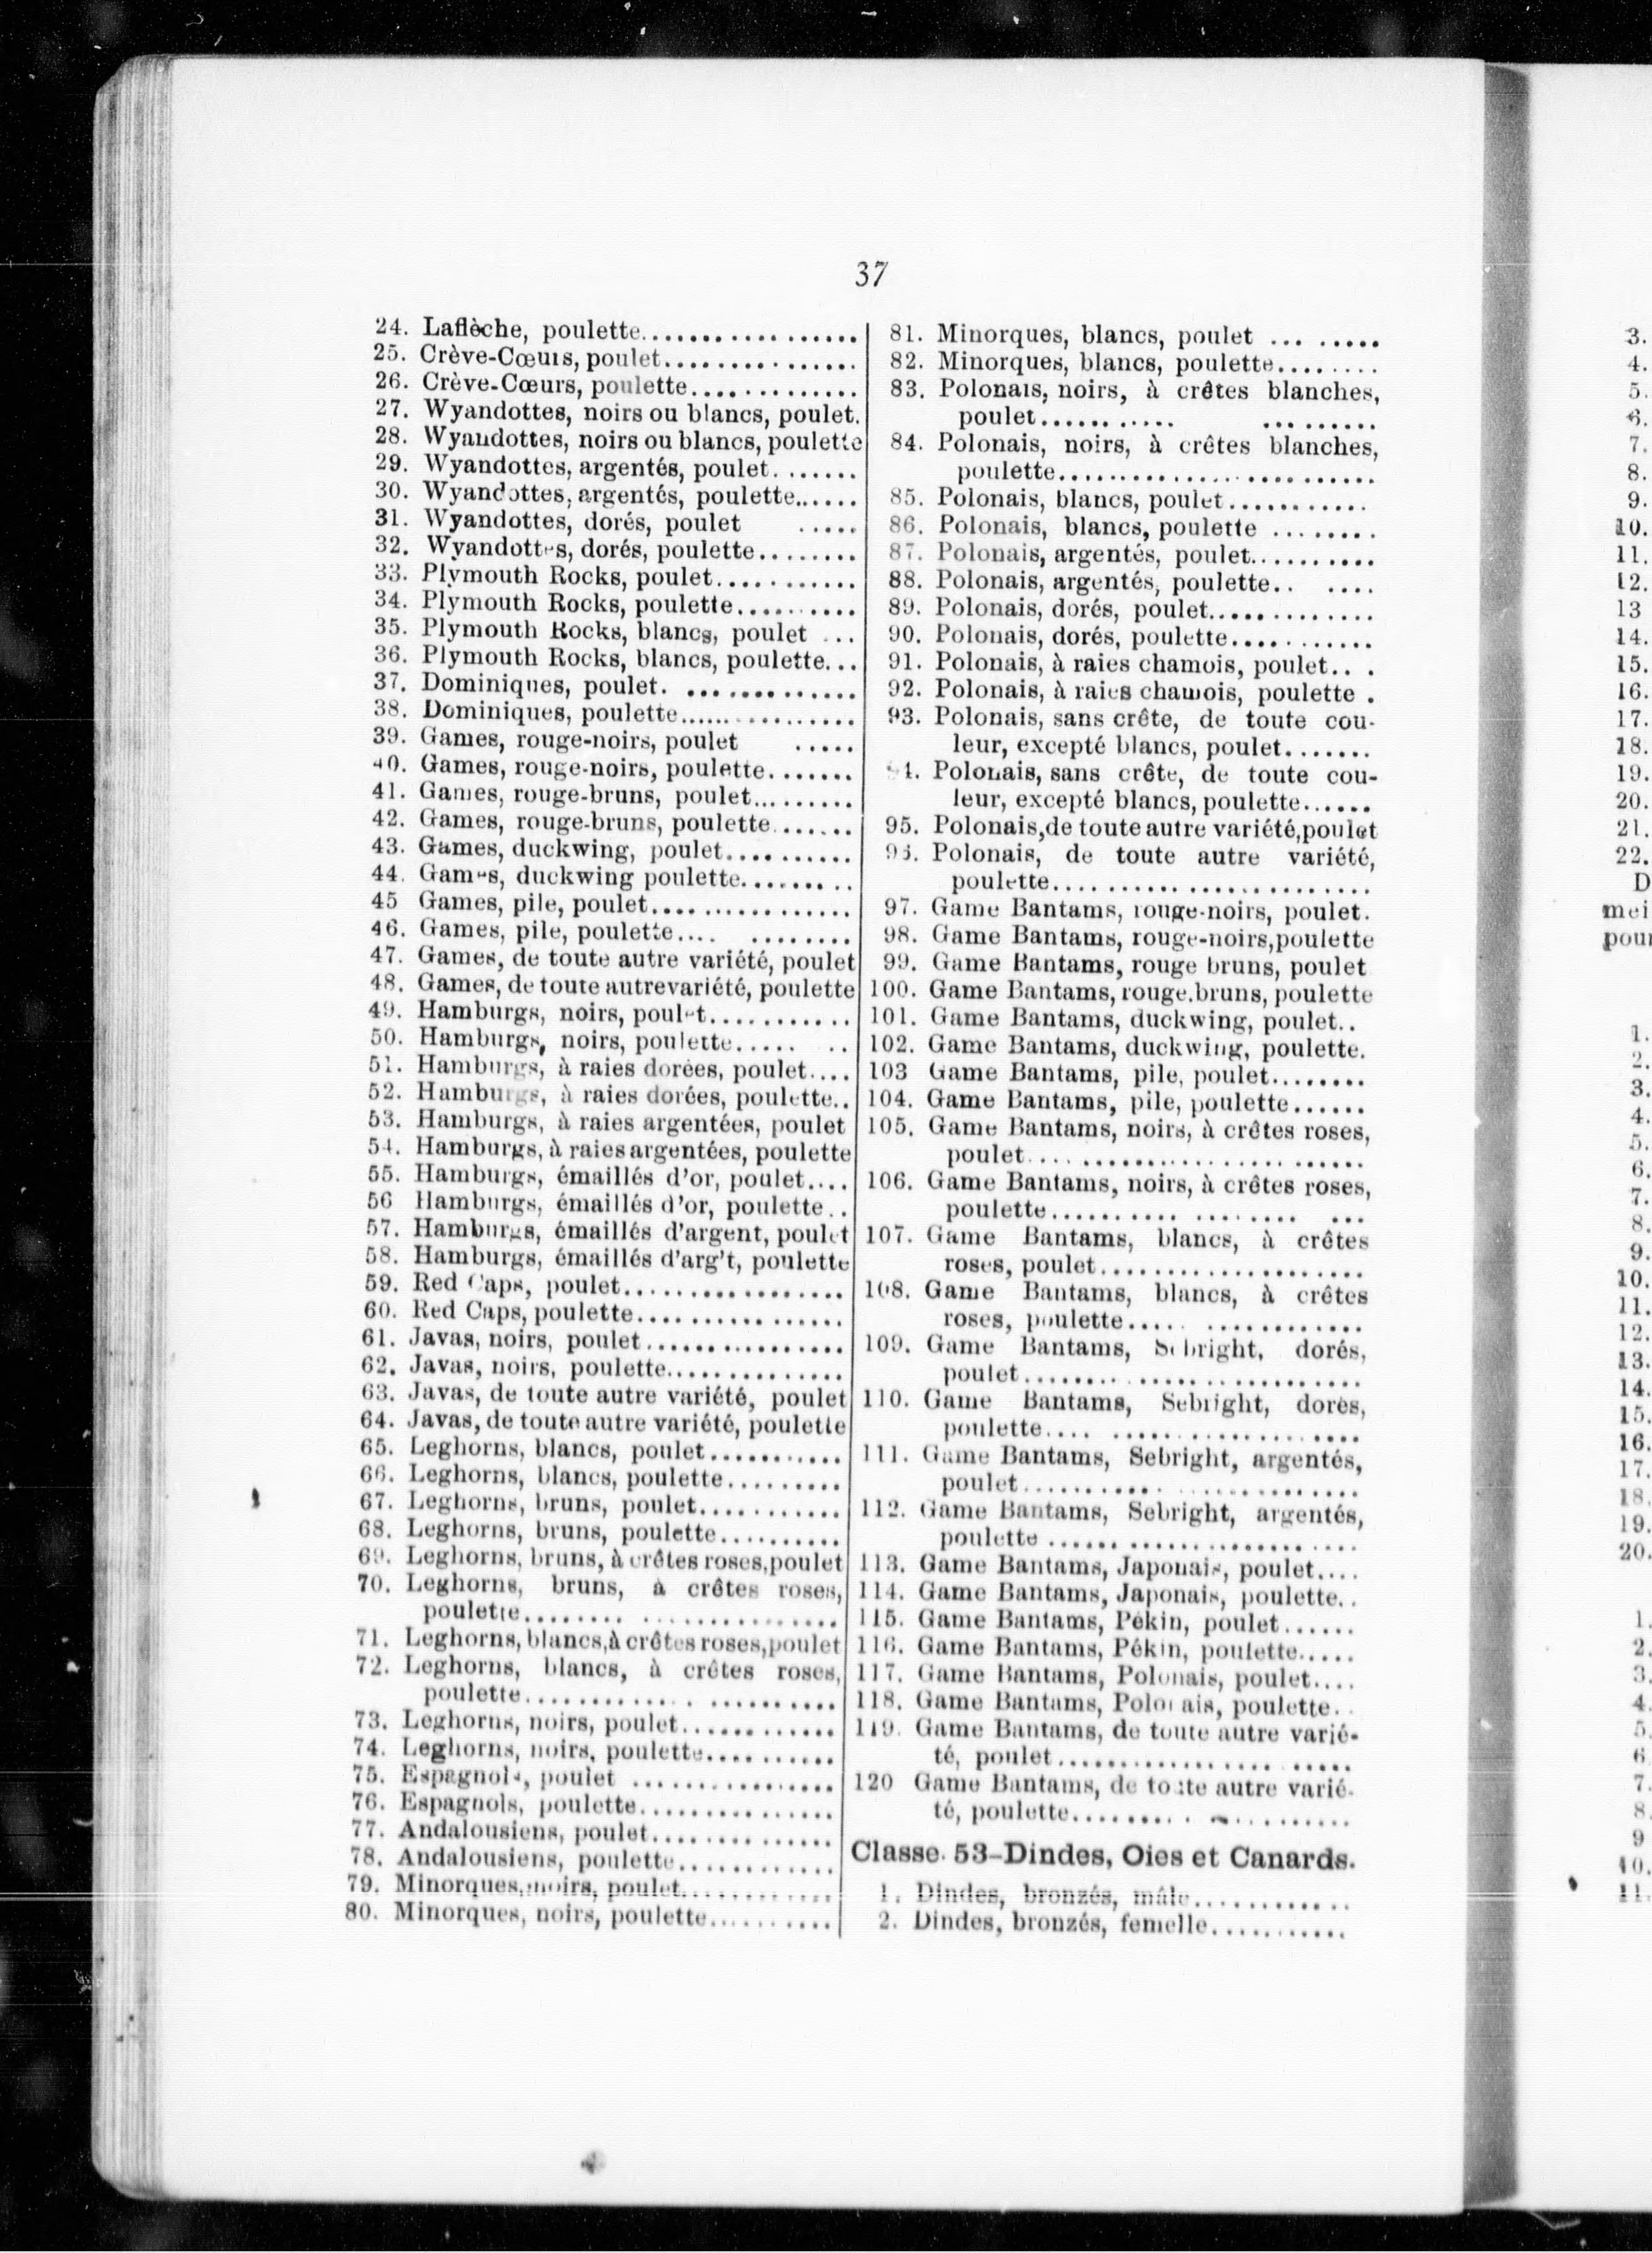 37
24. Laflèche, poulette..................
25. Crève-Cœurs, poulet................
26. Crève-Cœurs, poulette..............
27. Wyandottes, noirs ou blancs, poulet.
28. Wyandottes, noirs ou blancs, poulette
29. Wyandottes, argentés, poulet.......
30. Wyandottes, argentés, poulette......
31. Wyandottes, dorés, poulet .....
32. Wyandottes, dorés, poulette........
33. Plymouth Rocks, poulet............
34. Plymouth Rocks, poulette..........
35. Plymouth Rocks, blancs, poulet ...
36. Plymouth Rocks, blancs, poulette...
37. Dominiques, poulet. .............
38. Dominiques, poulette................
39. Games, rouge-noirs, poulet .....
40. Games, rouge-noirs, poulette.......
41. Games, rouge-bruns, poulet.........
42. Games, rouge-bruns, poulette.......
43. Games, duckwing, poulet...........
44. Games, duckwing poulette.........
45 Games, pile, poulet.................
46. Games, pile, poulette.... ........
47. Games, de toute autre variété, poulet
48. Games, de toute autre variété, poulette
49. Hamburgs, noirs, poulet............
50. Hamburgs, noirs, poulette..... ..
51. Hamburgs, à raies dorées, poulet....
52. Hamburgs, à raies dorées, poulette..
53. Hamburgs, à raies argentées, poulet
54. Hamburgs, à raies argentées, poulette
55. Hamburgs, émaillés d'or, poulet....
56 Hamburgs, émaillés d'or, poulette..
57. Hamburgs, émaillés d'argent, poulet
58. Hamburgs, émaillés d'arg't, poulette
59. Red Caps, poulet..................
60. Red Caps, poulette.................
61. Javas, noirs, poulet.................
62. Javas, noirs, poulette...............
63. Javas, de toute autre variété, poulet
64. Javas, de toute autre variété, poulette
65. Leghorns, blancs, poulet...........
66. Leghorns, blancs, poulette.........
67. Leghorns, bruns, poulet............
68. Leghorns, bruns, poulette..........
69. Leghorns, bruns, à crêtes roses, poulet
70. Leghorns, bruns, à crêtes roses,
poulette........ ...............
71. Leghorns, blancs, à crêtes roses, poulet
72. Leghorns, blancs, à crêtes roses,
poulette............. ..........
73. Leghorns, noirs, poulet............
74. Leghorns, noirs, poulette..........
75. Espagnols, poulet .................
76. Espagnols, poulette................
77. Andalousiens, poulet...............
78. Andalousiens, poulette.............
79. Minorques, noirs, poulet............
80. Minorques, noirs, poulette..........
81. Minorques, blancs, poulet ... .....
82. Minorques, blancs, poulette........
83. Polonais, noirs, à crêtes blanches,
poulet........... .........
84. Polonais, noirs, à crêtes blanches,
poulette..........................
85. Polonais, blancs, poulet...........
86. Polonais, blancs, poulette ........
87. Polonais, argentés, poulet..........
88. Polonais, argentés, poulette.. ....
89. Polonais, dorés, poulet.............
90. Polonais, dorés, poulette............
91. Polonais, à raies chamois, poulet.. .
92. Polonais, à raies chamois, poulette .
93. Polonais, sans crête, de toute cou-
leur, excepté blancs, poulet.......
94. Polonais, sans crête, de toute cou-
leur, excepté blancs, poulette......
95. Polonais, de toute autre variété, poulet
96. Polonais, de toute autre variété,
poulette..........................
97. Game Bantams, rouge-noirs, poulet.
98. Game Bantams, rouge-noirs, poulette
99. Game Bantams, rouge bruns, poulet
100. Game Bantams, rouge.bruns, poulette
101. Game Bantams, duckwing, poulet..
102. Game Bantams, duckwing, poulette.
103 Game Bantams, pile, poulet........
104. Game Bantams, pile, poulette......
105. Game Bantams, noirs, à crêtes roses,
poulet.... ................ ......
106. Game Bantams, noirs, à crêtes roses,
poulette........... ........ ...
107. Game Bantams, blancs, à crêtes
roses, poulet.....................
108. Game Bantams, blancs, à crêtes
roses, poulette..... ............
109. Game Bantams, Sebright, dorés,
poulet......... .................
110. Game Bantams, Sebright, dorés,
poulette.... ....................
111. Game Bantams, Sebright, argentés,
poulet........... .............
112. Game Bantams, Sebright, argentés,
poulette ...... .................
113. Game Bantams, Japonais, poulet....
114. Game Bantams, Japonais, poulette..
115. Game Bantams, Pékin, poulet......
116. Game Bantams, Pékin, poulette.....
117. Game Bantams, Polonais, poulet....
118. Game Bantams, Polonais, poulette..
119. Game Bantams, de toute autre varié-
té, poulet................. .....
120 Game Bantams, de toute autre varié-
té, poulette......... ...........
Classe. 53-Dindes, Oies et Canards.
1. Dindes, bronzés, mâle.............
2. Dindes, bronzés, femelle...........
3.
4.
5.
6.
7.
8.
9.
10.
11.
12.
13
14.
15.
16.
17.
18.
19.
20.
21.
22.
D
mei
pour
1.
2.
3.
4.
5.
6.
7.
8.
9.
10.
11.
12.
13.
14.
15.
16.
17.
18.
19.
20.
1.
2.
3.
4.
5.
6
7.
8.
9
10.
11.